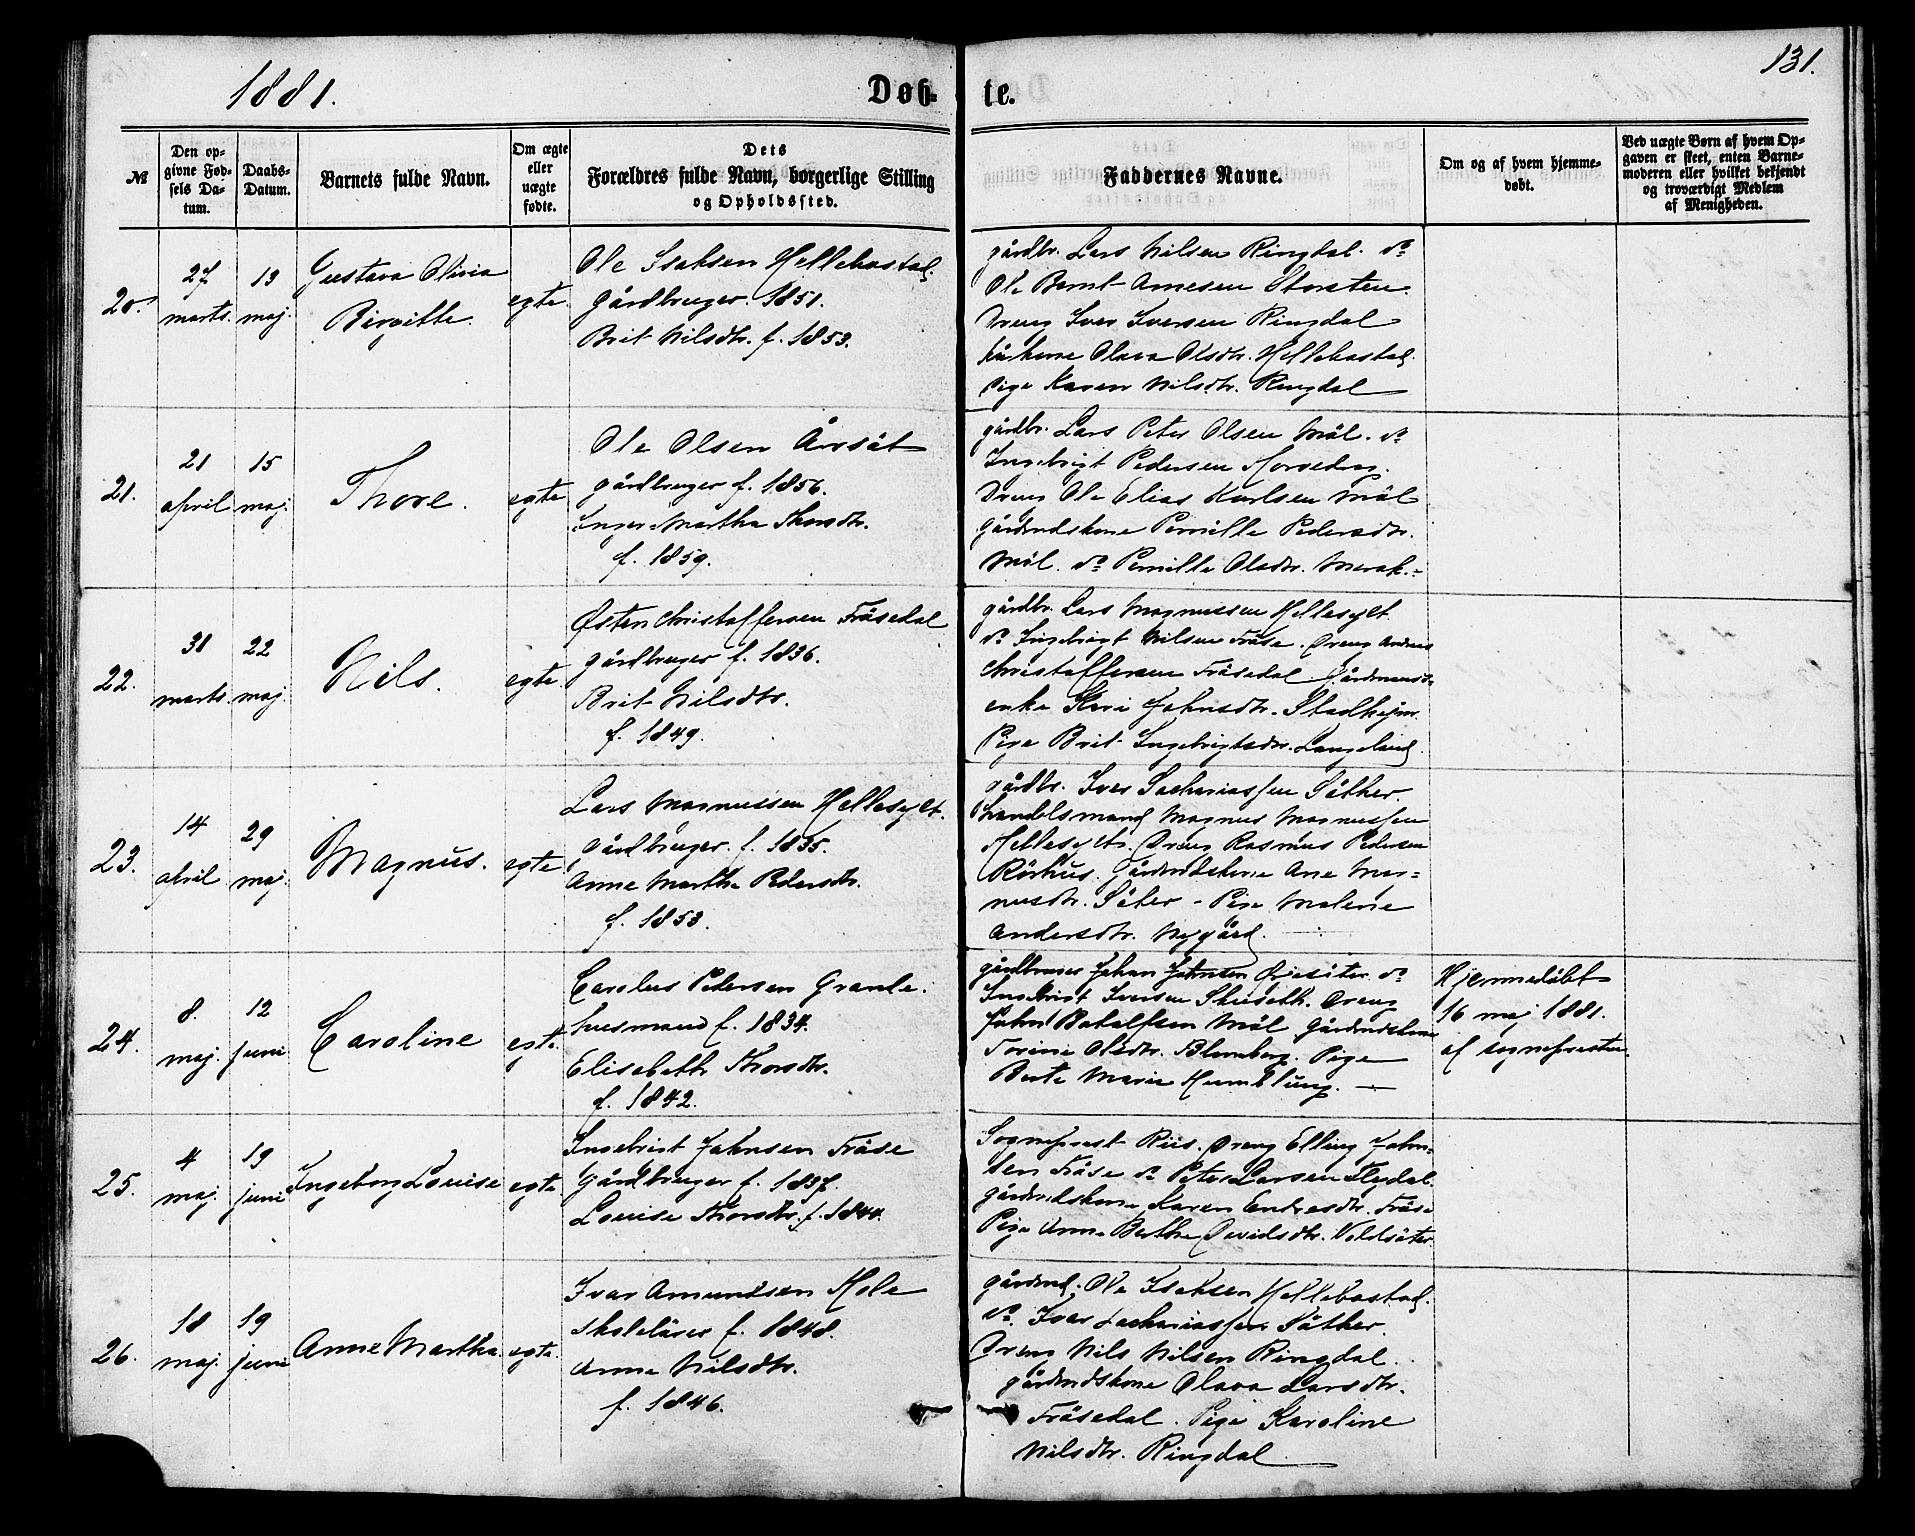 1881.
Døb- te.
131.
№
Den opgivne Fødsels Datum.
Daabs-Datum.
Barnets fulde Navn.
Om ægte eller uægte fødte.
Dets Forældres fulde Navn, borgerlige Stilling og Opholdssted.
Faddernes Navne.
Om og af hvem hjemmedøbt.
Ved uægte Børn af hvem Opgaven er skeet, enten Barnemoderen eller hvilket bekjendt og troværdigt Medlem af Menigheden.
20.
27 marts.
13 maj.
Gustava Olivia
Birgitte.
egte
Ole Isaksen Hellebostad.
gårdbruger. 1851.
Brit Nilsdtr. f. 1853.
gårdbr. Lars Nilsen Ringdal. do
Ole Bernt Arnesen Storsten.
Dreng Iver Iversen Ringdal
kone Olava Olsdtr. Hellebostad.
Pige Karen Nilsdtr. Ringdal
21.
21 april
15 maj.
Thore.
egte
Ole Olsen Årsät
gårdbruger f. 1856.
Inger Martha Thorsdtr.
f. 1859.
gårdbr. Lars Peter Olsen Möl. do
Ingebrigt Pedersen
Dreng Ole Elias Karlsen Möl
Gårdmdskone Pernille Pedersdtr.
Möl. do Pernille Olsdtr. Merok.-
22.
31 marts.
22 maj.
Nils.
egte
Østen Christoffersen Fräsedal
gårdbruger f. 1836.
Brit Nilsdtr.
f. 1849.
gårdbr. Lars Magnussen Hellesylt
do Ingebrigt Nilsen Fräse. Dreng Andreas
Christoffersen Fräsedal Gårdmands-
enke Kari Johnsdtr. Stadheim.
Pige Brit Ingebrigtsdtr. Langeland.
23.
14 april
29 maj.
Magnus.
egte
Lars Magnussen Hellesylt.
Gårdbruger. f. 1835.
Anne Martha Pedersdtr.
f. 1853.
gårdbr. Iver Sachariassen Säther.
Handelsmand Magnus Magnussen
Hellesylt. Dreng Rasmus Pedersen
Rörhus. Gårdmdskone Ane Mag=
nusdtr. Säter - Pige Malene
Andersdtr. Nygård.
24.
8. maj.
12 juni
Caroline
egte.
Carolus Petersen Grande.
husmand f. 1834.
Elisabeth Thorsdtr.
f. 1842.
gårdbruger Johan Johnsen Gjøsäter. do
Ingebrigt Iversen Skuseth. Dreng
John Botolfsen Möl Gårdmdskone
Torine Olsdtr. Blomberg. Pige
Berte Marie Humblung. —
Hjemmedöbt
16 maj 1881.
af sognepresten.
25.
4 maj.
19 juni
Ingeborg Louise
egte
Ingebrigt Johnsen Fräse
Gårdbruger f. 1837.
Louise Thorsdtr. f. 1844.
Sogneprest Riis. Dreng Elling John-
sen Fräse do Peter Larsen Flydal.
gårdmdskone Karen Endresdtr. Fräse
Pige Anne Berthe Davidsdtr. Voldsäter.
26.
18 maj.
19 juni
Anne Martha.
egte.
Ivar Amundsen Hole
skolelärer f. 1848.
Anne Nilsdtr.
f. 1846.
gårdmd. Ole Isaksen Hellebostad.
do. Iver Zachariassen Säther.
Dreng Nils Nilsen Ringdal.
gårdmdskone Olava Larsdtr.
Fräsedal. Pige Karoline
Nilsdtr. Ringdal